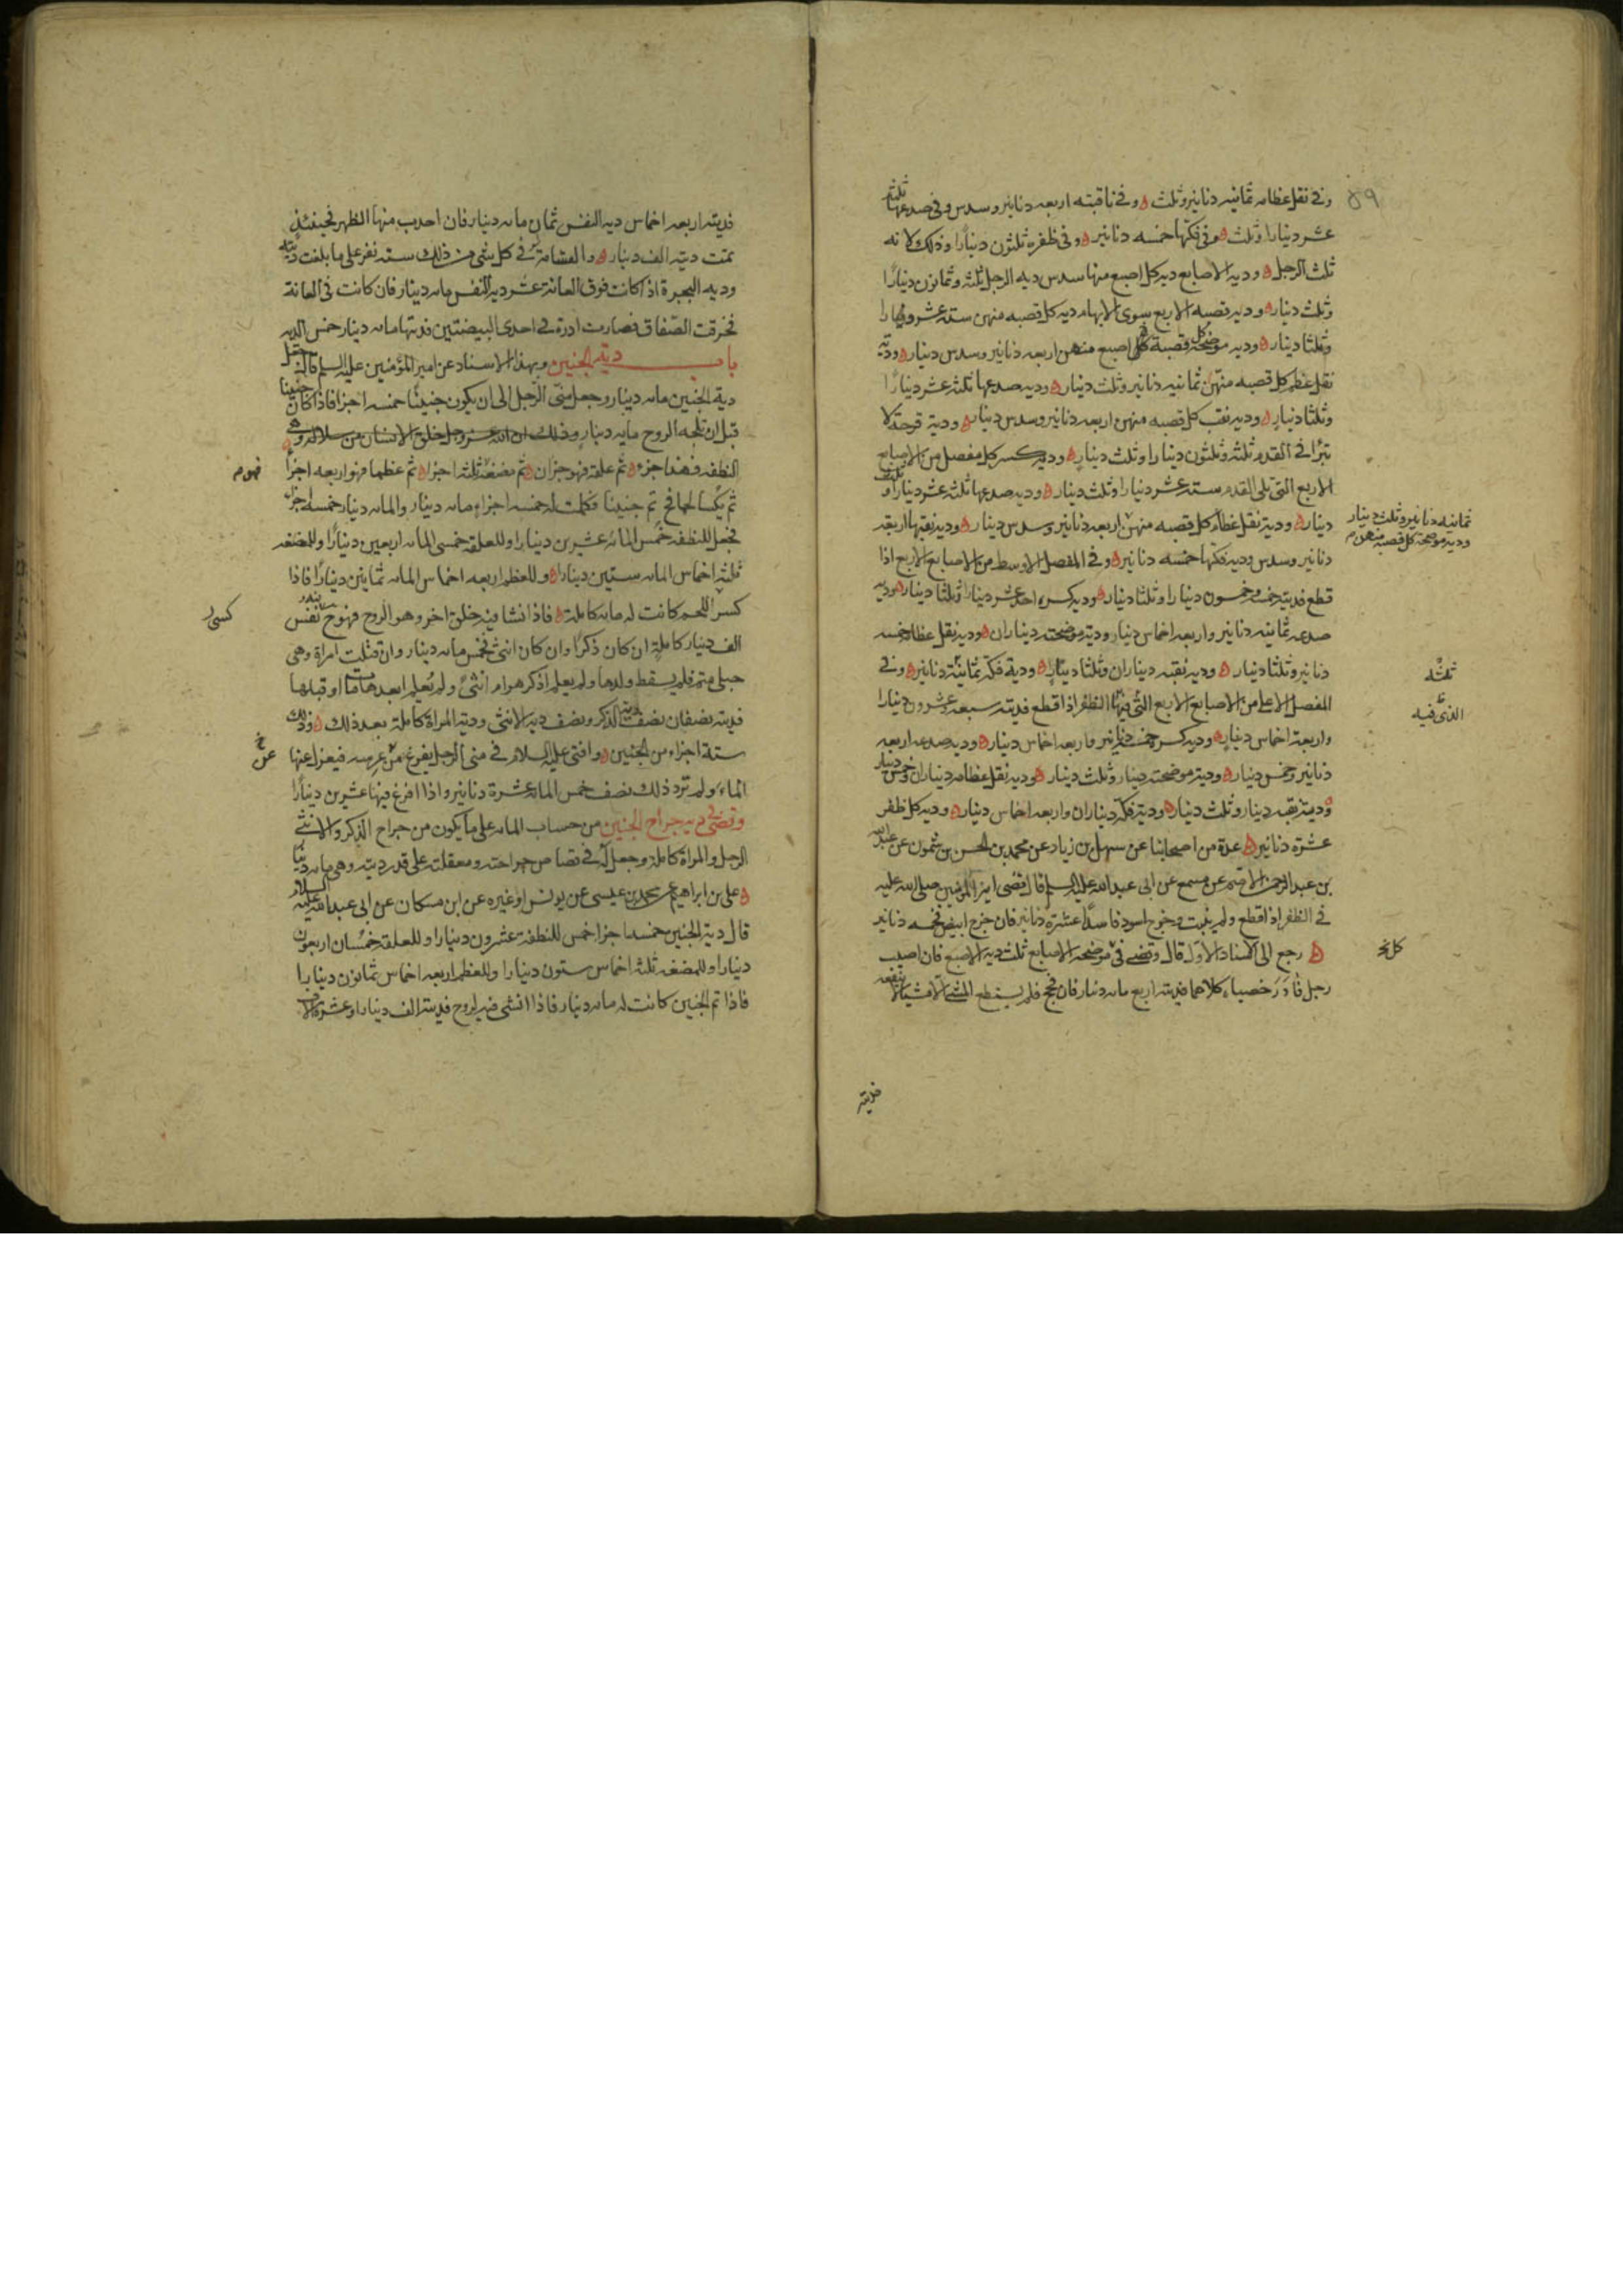 وفي نقل عظامه ثمانيه دنانير وثلث ه وفي ناقبته اربعه دنانير وسدس وفي صدعها ثلثه
عشر دينارا وثلث ه وفي فكها خمسه دنانير ه وفي ظفره ثلثون دينارا وذلك لانه
ثلث الرجل ه وديه الاصابع ديه كل اصبع منها سدس ديه الرجل ثلثه وثمانون دينارا
وثلث دينار ه وديه قصبه الاربع سوى الابهام ديه كل قصبه منهن سته عشر دينارا
وثلثا دينار ه وديه موضحة كل قصبة كل اصبع منهن اربعه دنانير وسدس دينار ه ودية
نقل عظم كل قصبه منهن ثمانيه دنانير وثلث دينار ه وديه صدعها ثلثه عشر دينارا
وثلثا دينار ه وديه نقب كل قصبه منهن اربعه دنانير وسدس دينار ه ودية قرحة لا
تبرأ في القدم ثلثه وثلثون دينارا وثلث دينار ه وديه كسر كل مفصل من الاصابع
الاربع التي تلي القدم سته عشر دينارا وثلث دينار ه وديه صدعها ثلثه عشر دينارا و ثلث
دينار ه ودية نقل عظام كل قصبه منهن اربعه دنانير وسدس دينار ه وديه نقبها اربعه
ثمانيه دنانير وثلث دينار
ودية موضحة كل قصبة منهن م
دنانير وسدس وديه فكها خمسه دنانير ه وفي المفصل الاوسط من الاصابع الاربع اذا
قطع فديته خمسة وخمسون دينارا وثلثا دينار ه وديه كسره احد عشر دينارا وثلثا دينار ه وديه
صدعه ثمانيه دنانير واربعه اخماس دينار ودية موضحته ديناران ه وديه نقل عظامه خمسه
دنانير وثلثا دينار ه وديه نقبه ديناران وثلثا دينار ه ودية فكه ثمانية دنانير ه وفي
ثلثه
المفصل الاعلى من الاصابع الاربع التي فيها الظفر اذا قطع فديته سبعه وعشرون دينارا
الذي فيه
واربعة اخماس دينار ه وديه كسره خمسة دنانير واربعه اخماس دينار ه وديه صدعه اربعه
دنانير وخمس دينار ه وديه موضحته دينار وثلث دينار ه وديه نقل عظامه ديناران وخمس دينار
وديه نقبه دينار وثلث دينار ه ودية فكه ديناران واربعه اخماس دينار ه وديه كل ظفر
عشرة دنانير ه عدة من اصحابنا عن سهل بن زياد عن محمد بن الحسن بن شمون عن عبد الله
بن عبد الرحمن الاصم عن مسمع عن ابى عبد الله عليه السلم قال قضى امير المؤمنين صلى الله عليه
في الظفر اذا قطع ولم ينبت وخرج اسود فاسدا عشرة دنانير فان خرج ابيض فخمسه دنانير
ه رجع الى الاسناد الاول قال وقضى في موضحه الاصابع ثلث ديه الاصبع فان اصيب
كل
رجل فادر خصياه كلاهما فديته اربع مائه دينار فان فحج فلم يستطع المشي الا مشيا لا ينفعه
فديته
فديته اربعه اخماس ديه النفس ثمان مائه دينار فان احدب منها الظهر فحينئذ
تمت ديته الف دينار ه والقسامة في كل شى من ذلك سته نفر على ما بلغت ديته
وديه البجرة اذا كانت فوق العانة عشر ديه النفس مائه دينار فان كانت في العانة
فخرقت الصفاق فصارت ادرة في احدى البيضتين فديتها مائه دينار خمس الديه
باب دية الجنين وبهذا الاسناد عن امير المؤمنين عليه السلم قال جعل
دية الجنين مائه دينار وجعل منى الرجل الى ان يكون جنينا خمسه اجزا فاذا كان جنينا
قبل ان تلجه الروح مايه دينار وذلك ان الله عز وجل خلق الانسان من سلاله وهي
النطفه فهذا جزو ه ثم علقه فهو جزان ه ثم مضغة ثلثه اجزا ه ثم عظما فهو اربعه اجزا
فهو م
ثم يكسا لحما فح تم جنينا فكملت له خمسه اجزاء مائه دينار والمائه دينار خمسه اجزا
فجعل للنطفه خمس المائه عشرين دينارا وللعلقه خمسى المائه اربعين دينارا وللمضغه
ثلثه اخماس المائه ستين دينارا ه وللعظم اربعه اخماس المائه ثمانين دينارا فاذا
كسي اللحم كانت له مائه كاملة ه فاذا انشا فيه خلق اخر وهو الروح فهو ح نفس
كسى
الف دينار كاملة ان كان ذكرا وان كان انثى فخمس مائه دينار وان قتلت امراة وهي
حبلى متم فلم يسقط ولدها ولم يعلم اذكر هو ام انثى ولم يعلم ابعدها مات او قبلها
فديته نصفان نصف دية الذكر ونصف ديه الانثى ودية المراة كاملة بعد ذلك ه وذلك
ستة اجزاء من الجنين ه وافتى عليه السلام في منى الرجل يفرغ من عرسه فيعزل عنها
عن خ
الماء ولم ترد ذلك نصف خمس المائة عشرة دنانير واذا افرغ فيها عشرين دينارا
وقضى في ديه جراح الجنين من حساب المائه على ما يكون من جراح الذكر والانثى
الرجل والمراة كاملة وجعل له في قصاص جراحته ومعقلته على قدر ديته وهى مائه دينا
ه علي بن ابراهيم عن محمد بن عيسى عن يونس او غيره عن ابن مسكان عن ابى عبد الله عليه السلام
قال دية الجنين خمسه اجزا خمس للنطفة عشرون دينارا وللعلقة خمسان اربعون
دينارا وللمضغه ثلثه اخماس ستون دينارا وللعظم اربعه اخماس ثمانون دينارا
فاذا تم الجنين كانت له مائه دينار فاذا انشى فيه الروح فديته الف دينار او عشرة